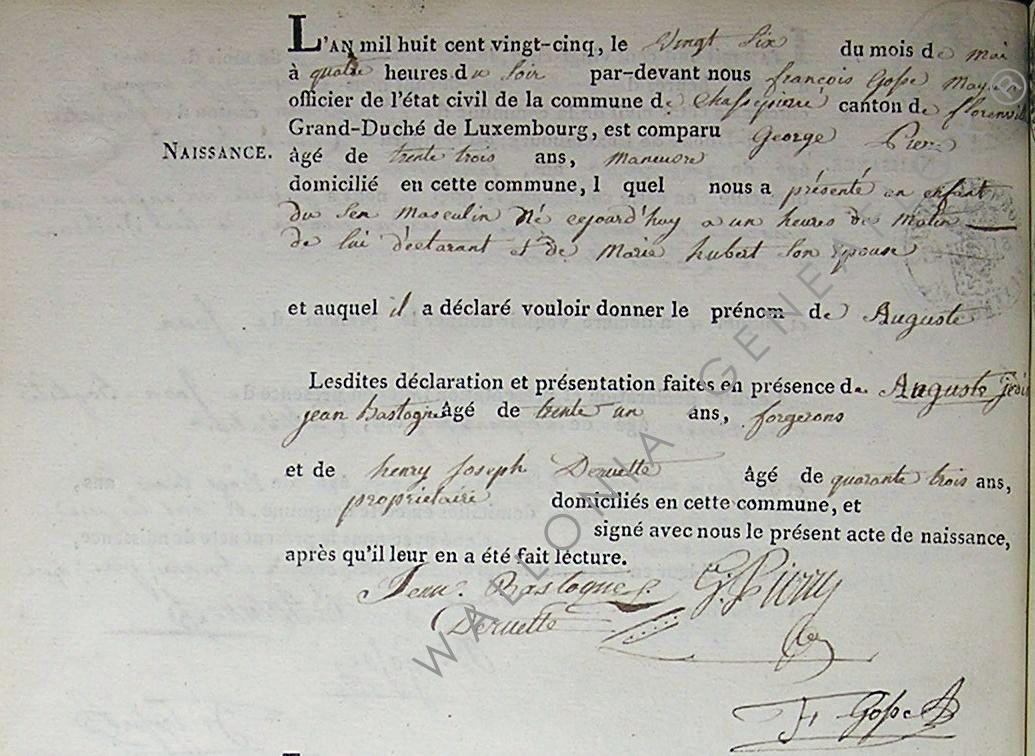 L'AN mil huit cent vingt-cinq, le Vingt Six du mois de mai
à quatre heures du Soir par-devant nous françois Gosse Mayeur
officier de l'état civil de la commune de Chassepierre canton de florenville
Grand-Duché de Luxembourg, est comparu George
NAISSANCE.
âgé de trente trois ans, maneuvre
domicilié en cette commune, l quel nous a présenté un enfant
du Sex Masculin Né cejourd'huy a un heures de Matin
de lui déclarant et de Marie hubert Son épouse
et auquel il a déclaré vouloir donner le prénom de Auguste
Lesdites déclaration et présentation faites en présence de Auguste
jean Bastogne âgé de trente un ans, forgerons
et de henry Joseph Deruette âgé de quarante trois ans,
proprietaire domiciliés en cette commune, et
signé avec nous le présent acte de naissance,
après qu'il leur en a été fait lecture.
Jean Bastogne G. Pierry
Deruette
F Gosse
WALLONIA GENE